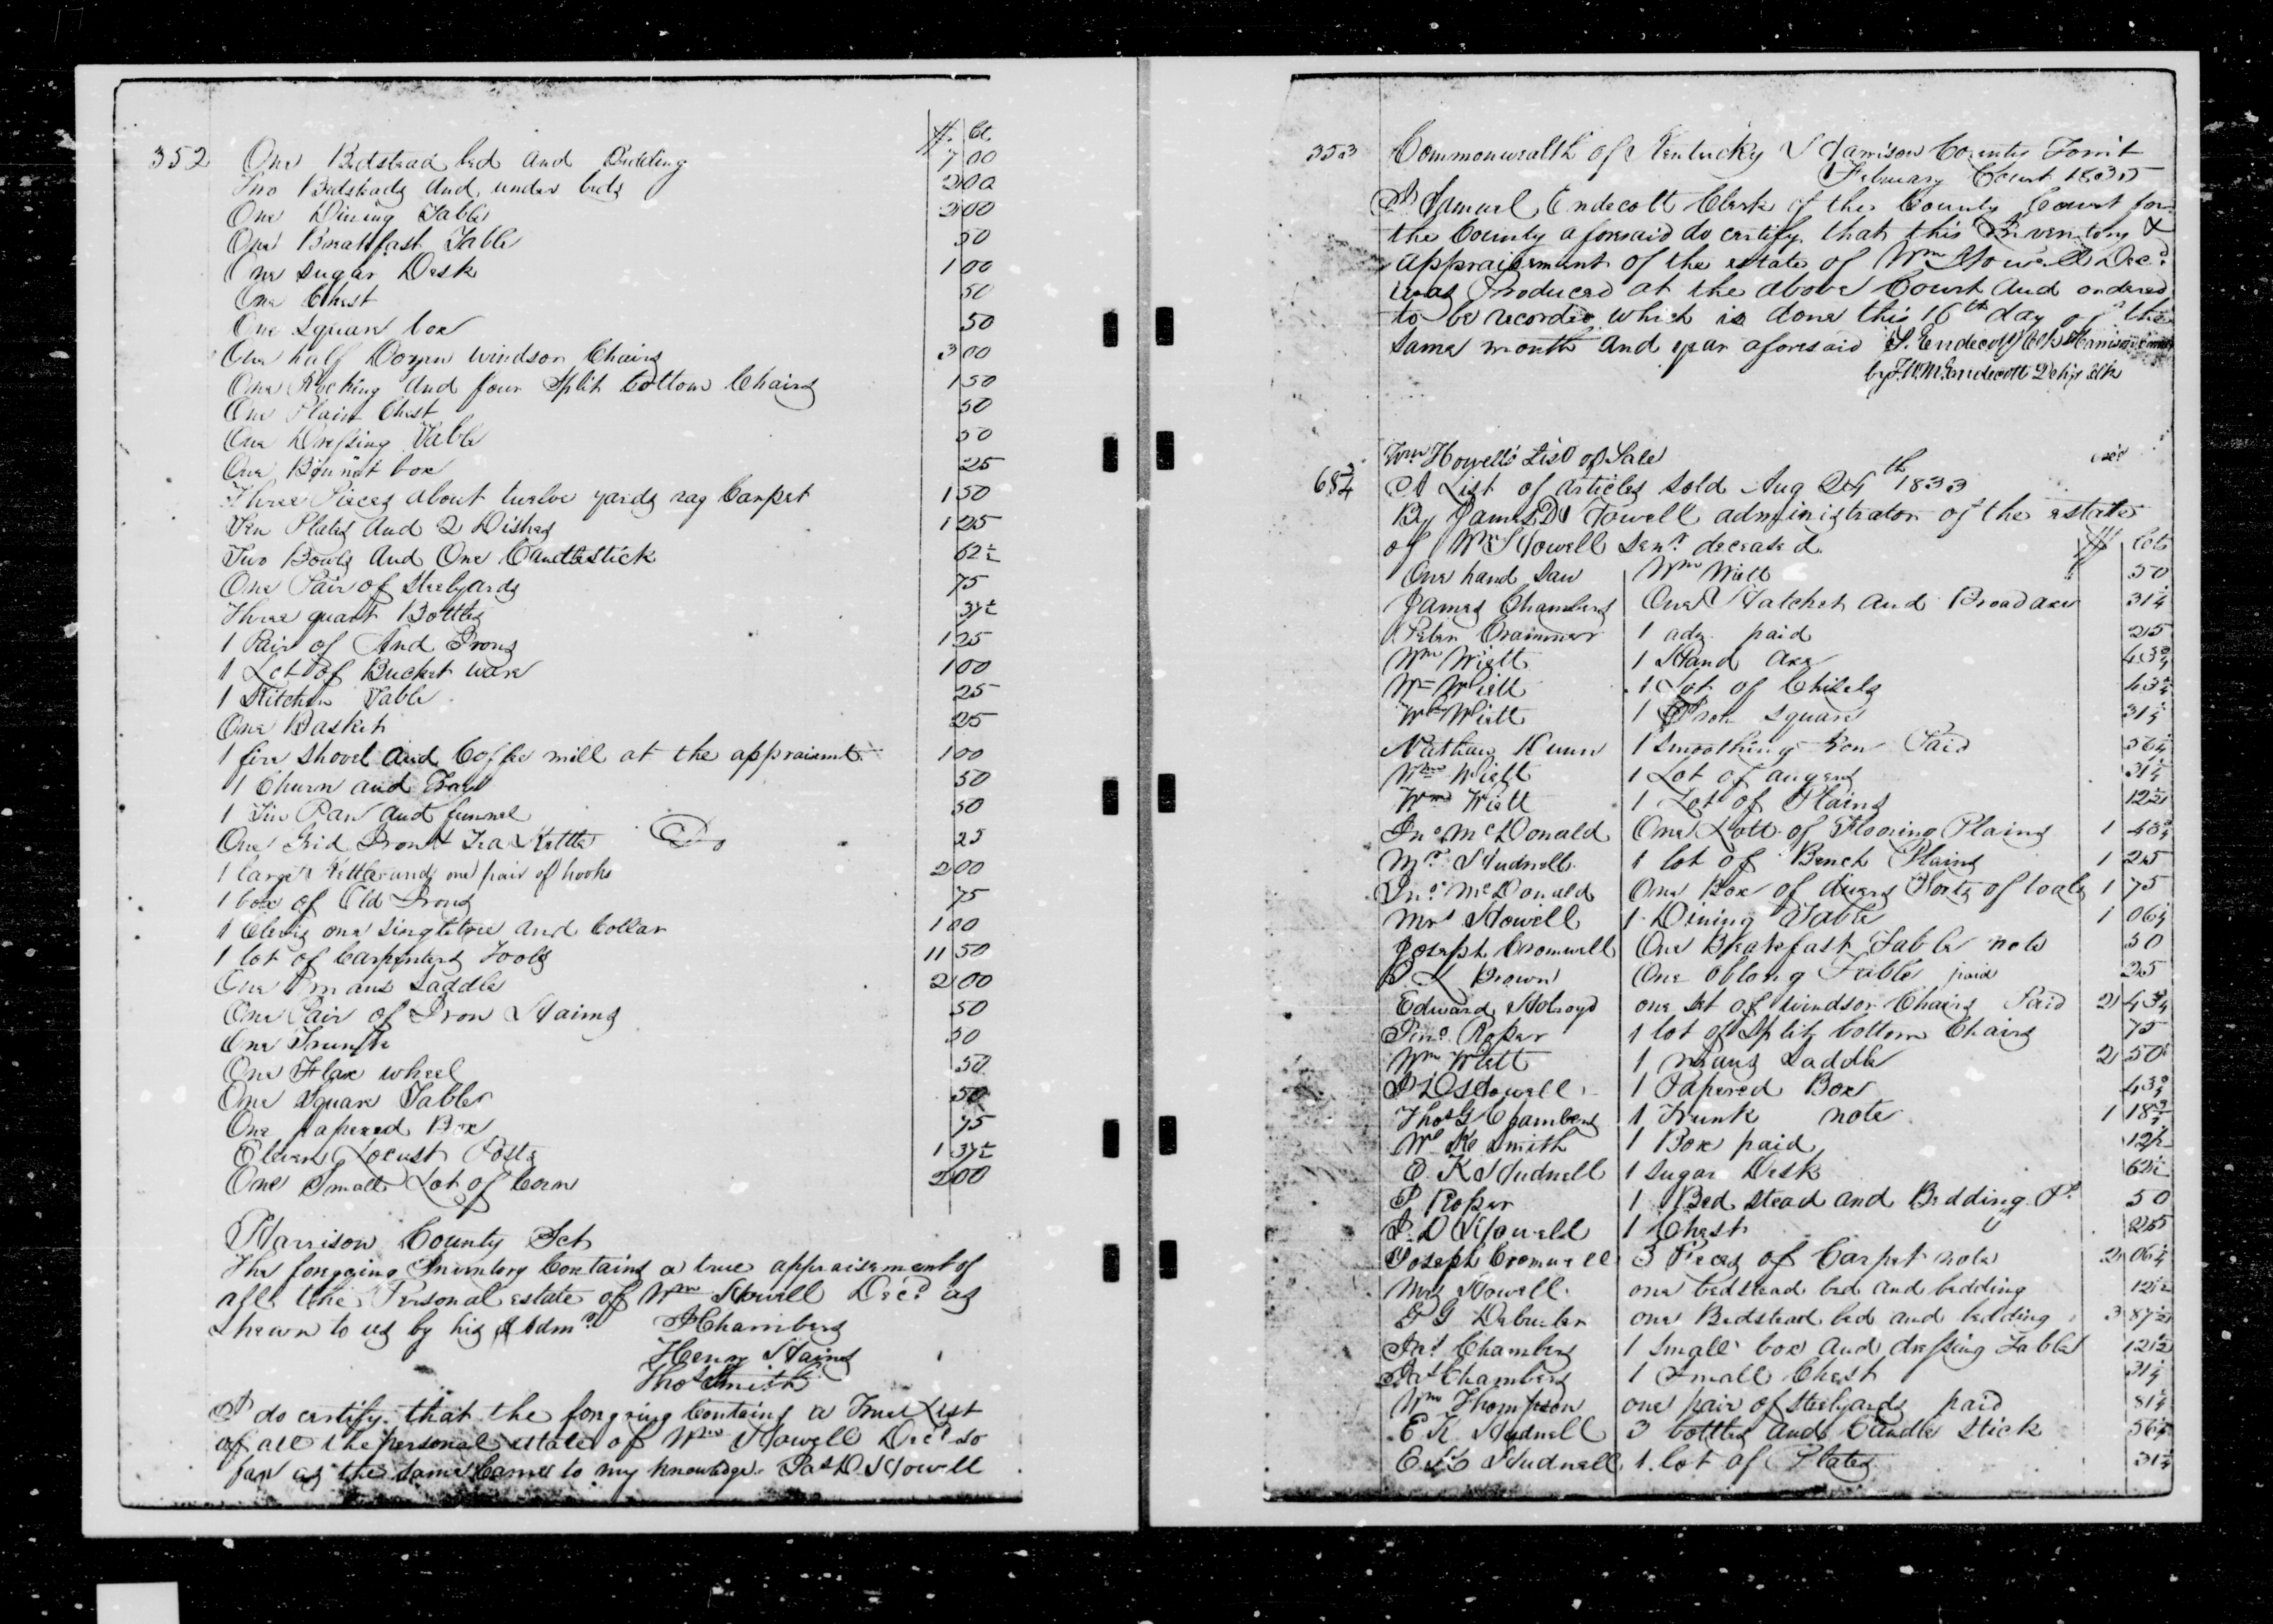 $. Ct.
352 One Bedstead bed and Bedding 7 00
Two Bedsteads and under beds 2 00
One Dining Table 2 00
One Breakfast Table 50
One Sugar Desk 1 00
One Chest 50
One Square box 50
One half Dozen windsor Chairs 3 00
One Rocking and four Split bottom Chairs 1 50
One Plain Chest 50
One Dressing Table 50
One Bonnet box 25
Three Pieces about twelve yards rag Carpet 1 50
Ten Plates and 2 Dishes 1 25
Two Bowls and One Candlestick 62½
One Pair of Steelyards 75
Three quart Bottles 37½
1 Pair of And Irons 1 25
1 Lot of Bucket ware 1 00
1 Kitchen Table 25
One Basket 25
1 fire shovel and Coffee mill at the appraismt. 1 00
1 Churn and Tray 50
1 Tin Pan and funnel 50
One Grid Iron & Tea Kettle Do 25
1 large Kettle and one pair of hooks 2 00
1 box of Old Irons 75
1 Clevis one Singletree and Collar 1 00
1 lot of Carpenters Tools 11 50
One mans Saddle 2 00
One Pair of Iron Haims 50
One Trunk 50
One Flax wheel 50
One Square Table 50
One papered Box 75
Eleven Locust Posts 1 37½
One Small Lot of Corn 2 00
Harrison County Sct
The foregoing Inventory Contains a true appraisement of
all the Personal estate of Wm Howell Decd as
shewn to us by his Admr JChambers
Henry Haims
Thos Smith
I do certify that the foregoing Contains a True List
of all the personal estate of Wm Howell Decd so
far as the same Came to my knowledge Jas D. Howell
353 Commonwealth of Kentucky Harrison County Towit
February Court 1835
I Samuel Endecott Clerk of the County Court for
the County aforesaid do certify that this Inventory &
appraisement of the estate of Wm Howell Decd
was Produced at the above Court and ordered
to be recorded which is done this 16th day of the
same month and year aforesaid S. Endecott Clk Harrison
by Endecott Depy Clk
Wm Howell's List of Sale
A List of articles sold Aug 24th 1833
By James D Howell administrator of the estate
of Wm Howell Senr deceased $ Cts
One hand Saw Wm Wiett 50
James Chambers One Hatchet and Broad axe 31¼
Peter Crammer 1 adz paid 25
Wm Wiett 1 Hand axe 43¾
Wm Wiett 1 Lot of Chisels 43¾
Wm Wiett 1 Iron square 31¼
Nathan Dunn 1 Smoothing Iron Paid 56¼
Wm Wiett 1 Lot of augers 31¼
Wm Wiett 1 Lot of Plains 12½
Jno McDonald One Lott of Flooring Plains 1 43¾
Mr Hudnell 1 lot of Bench Plains 1 25
Jno McDonald One Box of divers Sorts of tools 1 75
Mrs Howell 1 Dining Table 1 06¼
Joseph Cromwell One Breakfast Table note 50
Brown One oblong Table paid 25
Edward Holroyd one set of windsor Chairs Paid 2 43¾
Jno Roper 1 lot of Split bottom Chairs 75
Wm Wiett 1 mans Saddle 2 50
J D Howell 1 Papered Box 43¾
Thos G Chambers 1 Trunk note 1 18¾
Smith 1 Box paid 12½
E. K Hudnell 1 sugar Desk 62½
J Roper 1 Bed stead and Bedding Pd 50
J. D Howell 1 Chest 25
Joseph Cromwell 3 Pieces of Carpet note 2 06¼
Mrs Howell one bedstead bed and bedding 12½
one Bedstead bed and bedding 3 87½
Jas Chambers 1 small box and dressing Table 12½
Jas Chambers 1 Small Chest 31¼
Wm Thompson one pair of Steelyards paid 81¼
E K Hudnell 3 bottles and Candle stick 56¼
E K Hudnell 1 lot of Plates 31¼